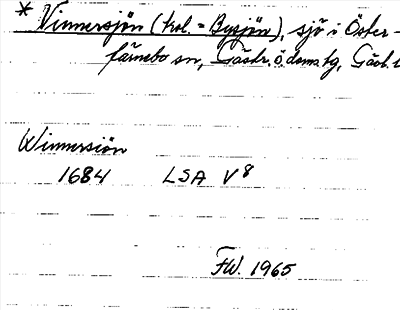 * Vinnersjön (kol. = Bysjön), sjö i Öster-
färnebo sn, Gästr. ö. doms tg, Gävl. l
Winnersiön
1684 LSA V8
FW. 1965